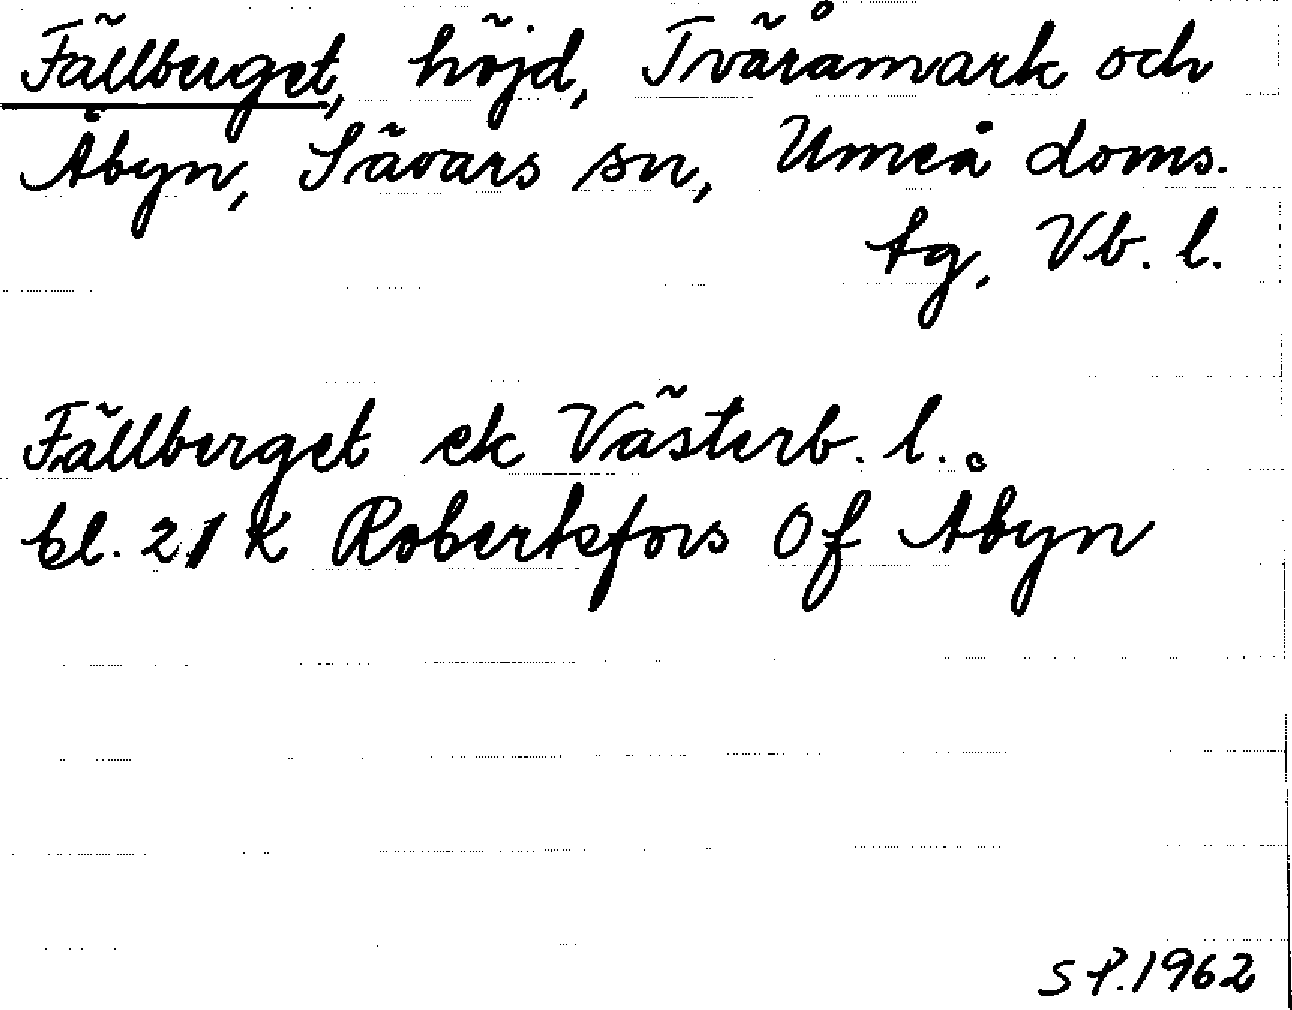 Fällberget, höjd, Tväråmark och
Åbyn, Sävars sn, Umeå doms.
tg, Vb. l.
Fällberget ek Västerb. l..
bl. 21 K Robertsfors Of Åbyn
S P. 1962